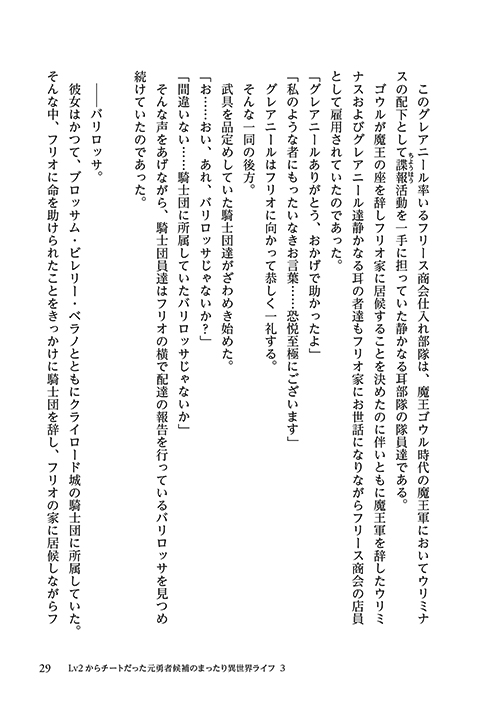 このグレアニール率いるフリース商会仕入れ部隊は、魔王ゴウル時代の魔王軍においてウリミナ
スの配下として諜報活動を一手に担っていた静かなる耳部隊の隊員達である。
ちょうほう
ゴウルが魔王の座を辞しフリオ家に居候することを決めたのに伴いともに魔王軍を辞したウリミ
ナスおよびグレアニール達静かなる耳の者達もフリオ家にお世話になりながらフリース商会の店員
として雇用されていたのであった。
「グレアニールありがとう、おかげで助かったよ」
「私のような者にもったいなきお言葉……恐悦至極にございます」
グレアニールはフリオに向かって恭しく一礼する。
そんな一同の後方。
武具を品定めしていた騎士団達がざわめき始めた。
「お……おい、あれ、バリロッサじゃないか？」
「間違いない……騎士団に所属していたバリロッサじゃないか」
そんな声をあげながら、騎士団員達はフリオの横で配達の報告を行っているバリロッサを見つめ
続けていたのであった。
――バリロッサ。
彼女はかつて、ブロッサム・ビレリー・ベラノとともにクライロード城の騎士団に所属していた。
そんな中、フリオに命を助けられたことをきっかけに騎士団を辞し、フリオの家に居候しながらフ
29 Lv2からチートだった元勇者候補のまったり異世界ライフ 3